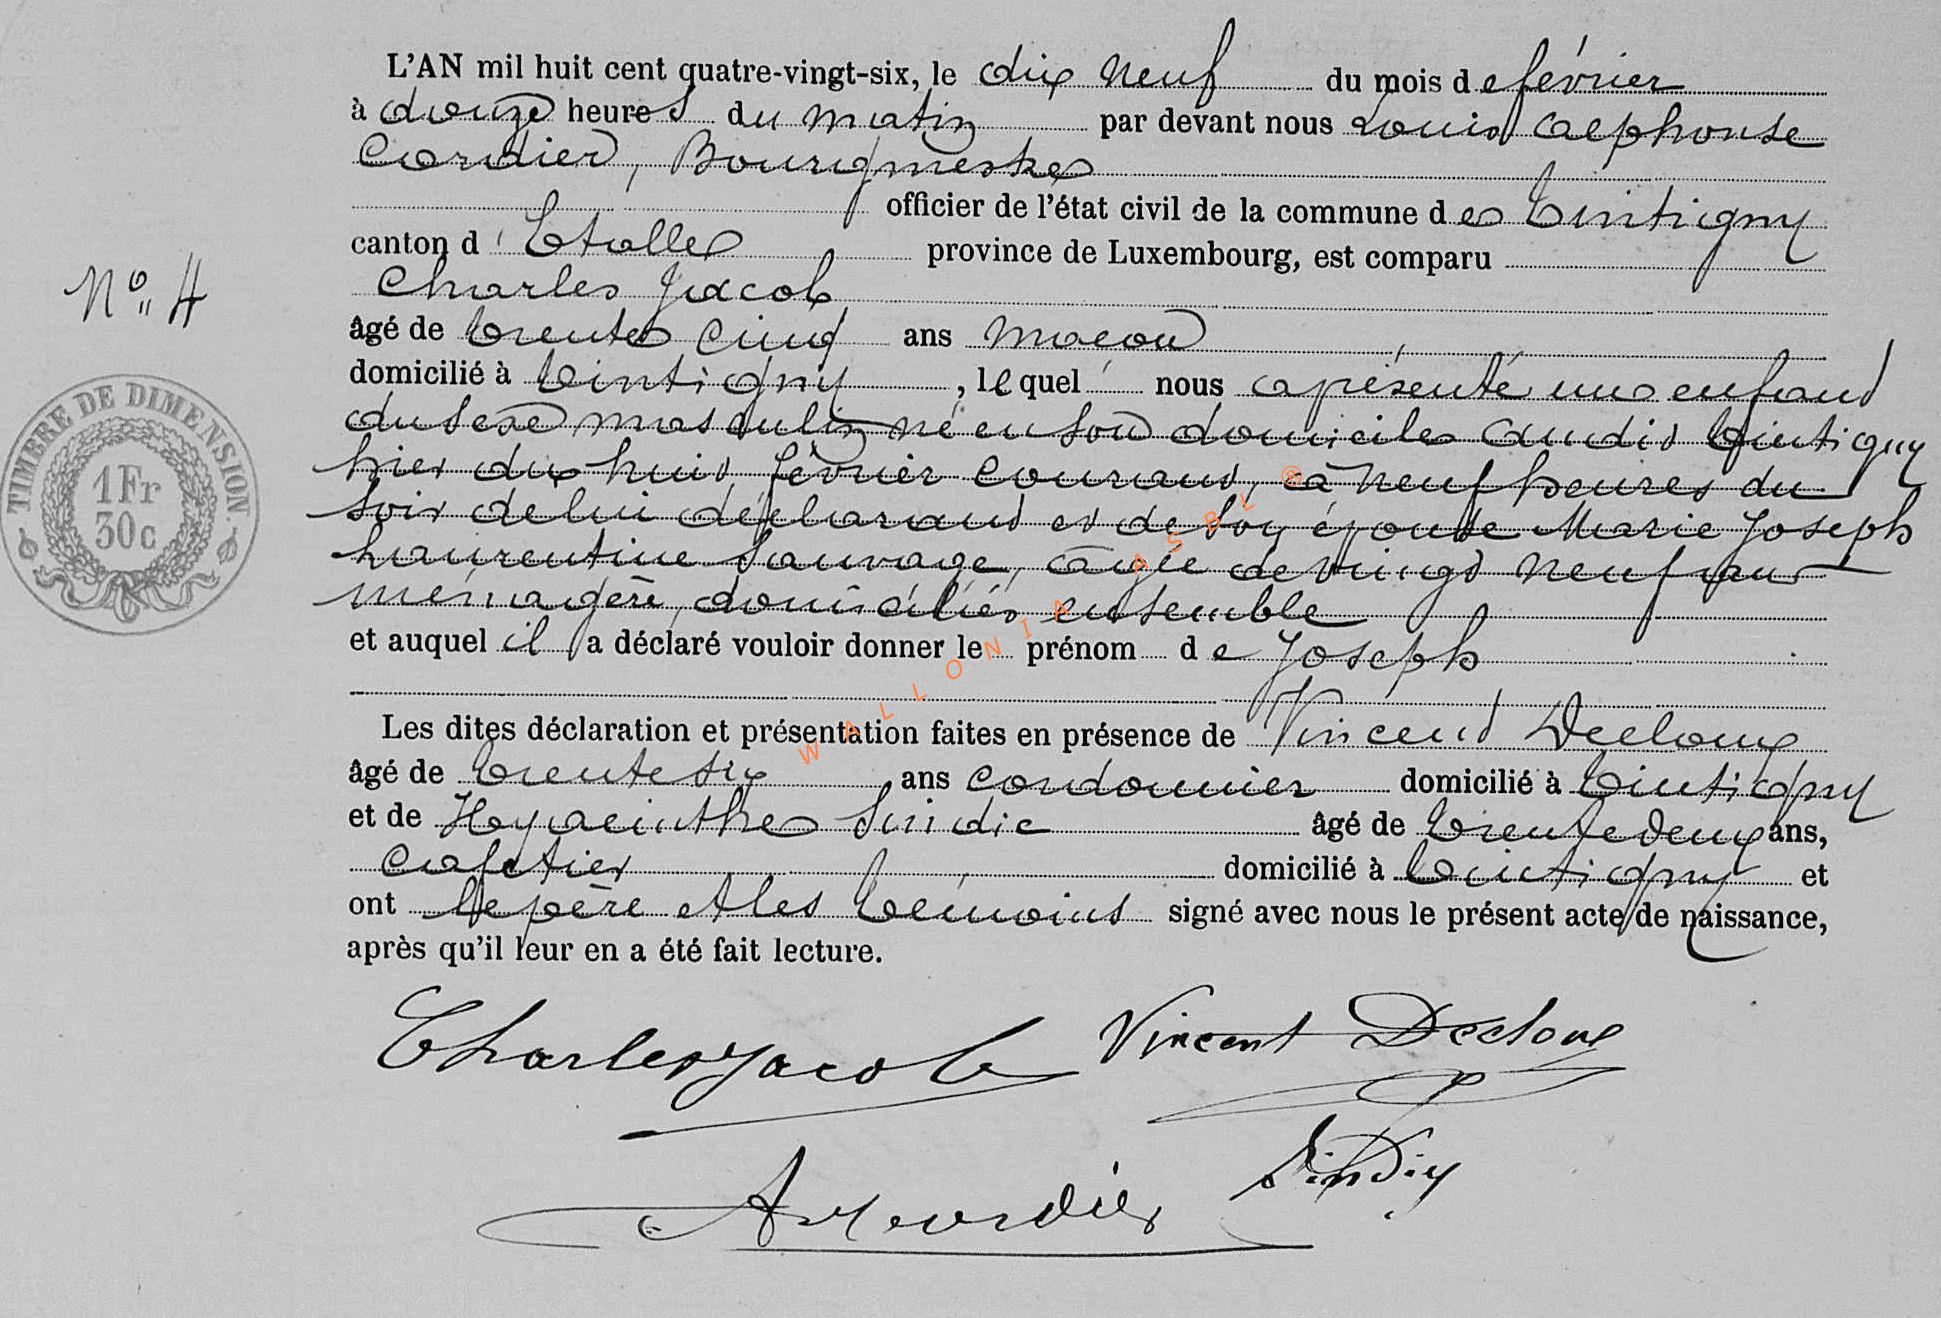 L'AN mil huit cent quatre-vingt-six, le dix neuf du mois de février
à douze heures du matin par devant nous Louis Alphonse
Cordier, Bourgmestre
officier de l'état civil de la commune de Tintigny
canton d'Etalle province de Luxembourg, est comparu
Charles Jacob
N° 4
âgé de trente cinq ans maçon
domicilié à Tintigny, lequel nous a présenté un enfant
du sexe masculin né en son domicile audit Tintigny
hier dix huit février courant, à neuf heures du
soir de lui déclarant et de son épouse Marie Joseph
Laurentine Sauvage, âgée de vingt neuf ans
ménagère, domiciliés ensemble
et auquel il a déclaré vouloir donner le prénom de Joseph
Les dites déclaration et présentation faites en présence de Vincent Decloux
âgé de trente six ans cordonnier domicilié à Tintigny
et de Hyacinthe Sindic âgé de trente deux ans,
cafetier domicilié à Tintigny et
ont le père et les témoins signé avec nous le présent acte de naissance,
après qu'il leur en a été fait lecture.
Charles Jacob Vincent Decloux
Sindic
A Cordier
TIMBRE DE DIMENSION.
1 Fr
30 c
WALLONIA ASBL ®